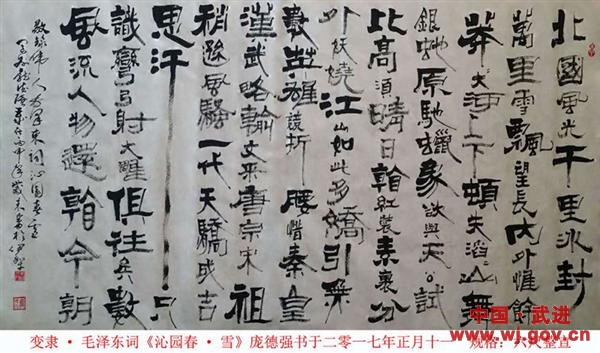 北國風光千里冰封
萬里雪飄望長內外惟餘
莽〻大河上下頓失滔〻山舞
銀蛇原馳蠟象欲與天公試
比高須晴日看紅裝素裹分
外妖嬈江山如此多嬌引無
數英雄競折腰惜秦皇
漢武略輸文采唐宗宋祖
稍遜風騷一代天驕成吉
思汗只
識彎弓射大雕俱往矣數
風流人物還看今朝
敬録偉人毛澤東詞沁園春雪
变隶·毛泽东词《沁园春·雪》庞德强书于二零一七年正月十一 规格：六尺整宣
中国·武进
www.wj.gov.cn